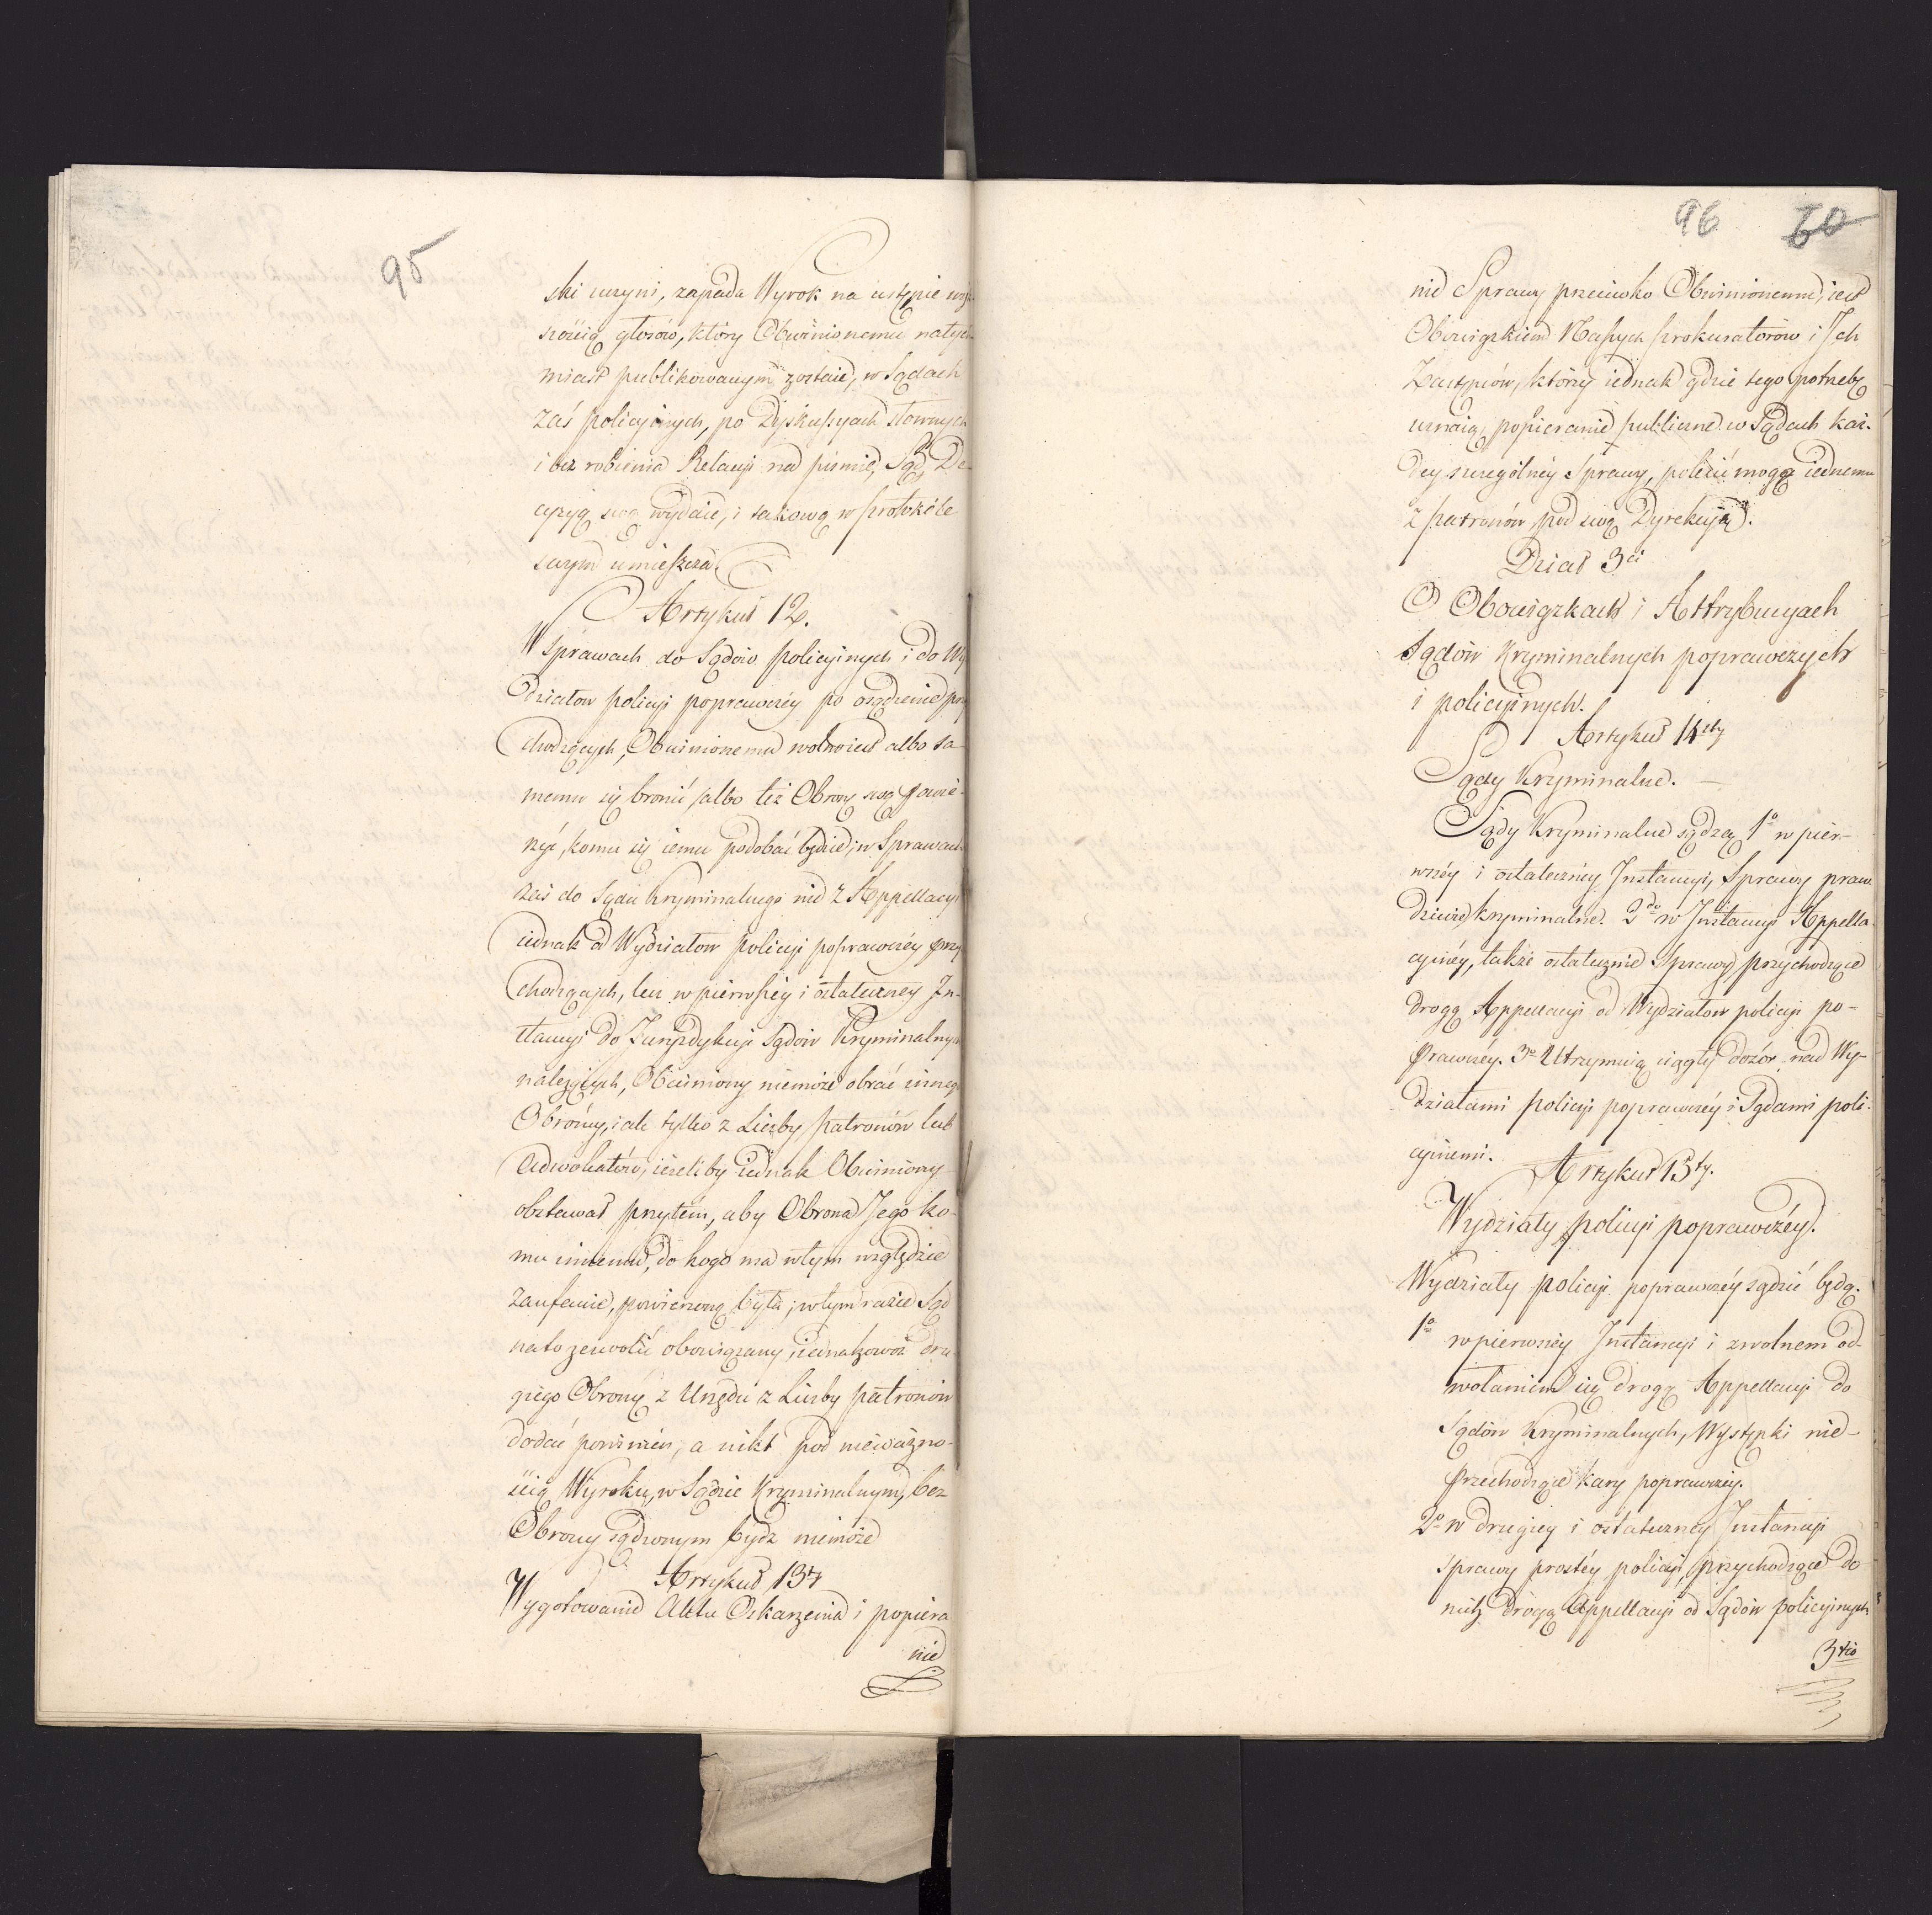 95
ski uczyni, zapada Wyrok na ustępie więk
szością głosów, który Obwinionemu natych
miast publikowanym zostaie, w Sądach
zaś policyinych, po Dyskussyach słownych
i bez robienia Relacyi na piśmie, Sąd De-
cyzyą swą wydaie, i takową w protokóle
swym umieszcza.
Artykuł 12.
W sprawach do Sądów policyinych i do Wy
działow policyi poprawczéy po osądzenie przy
chodzących, Obwinionemu wolno iest albo sa-
memu się bronić, albo też Obronę swą powie-
rzyć, komu się iemu podobać będzie; w Sprawach
zaś do Sądu Kryminalnego nie z Appellacyi
iednak od Wydziałow policyi poprawczéy przy
chodzących, lecz w pierwszéy i ostateczney In-
stancyi do Juryzdykcyi Sądów Kryminalnych
należących, Obwiniony niemoże obrać innego
Obrońcy, iak tylko z Liczby patronów lub
Adwokatów; ieżeliby iednak Obwiniony
obstawał przytém, aby Obrona Jego ko-
mu innemu, do kogo ma w tym względzie
zaufanie, powierzoną była; w tym razie Sąd
na to zezwolić obowiązany, iednakowoż dru-
giego Obrońcę z Urzędu z Liczby patronów
dodać powinien, a nikt pod nieważno-
ścią Wyroku, w Sądzie Kryminalnym, bez
Obrony sądzonym bydz niemoże
Artykuł 13ty
Wygotowanie Aktu Oskarzenia i popiera
nie
96 50
nie Sprawy przeciwko Obwinionemu, iest
Obowiązkiem Naszych prokuratorów i Ich
Zastępców, którzy iednak gdzie tego potrzebę
uznaią, popieranie publiczne w Sądach każ-
dey szczególnéy Sprawy, polecić mogą iednemu
z patronów pod swą Dyrekcyą.
Dział 3ci
O Obowiązkach i Attrybucyach
Sądów Kryminalnych poprawczych
i policyinych.
Artykuł 14sty
Sądy Kryminalne. —
Sądy Kryminalne sądzą 1o w pier-
wszéy i ostateczney Instancyi, Sprawy praw
dziwie kryminalne. 2do w Instancyi Appella-
cyinéy, także ostatecznie Sprawy przychodzące
drogą Appellacyi od Wydziałow policyi po-
prawczéy. 3o Utrzymuią ciągły dozór nad Wy-
działami policyi poprawczéy i Sądami poli-
cyinemi.
Artykuł 15ty.
Wydziały policyi poprawczéy.
Wydziały policyi poprawczéy sądzić będą.
1o w pierwszéy Instancyi i z wolnem od-
wołaniem się drogą Appellacyi do
Sądów Kryminalnych, Występki nie-
przechodzące kary poprawczéy.
2o w drugiey i ostateczney Instancyi
sprawy prostéy policyi, przychodzące do
nich drogą Appellacyi od Sądów policyinych
3tio